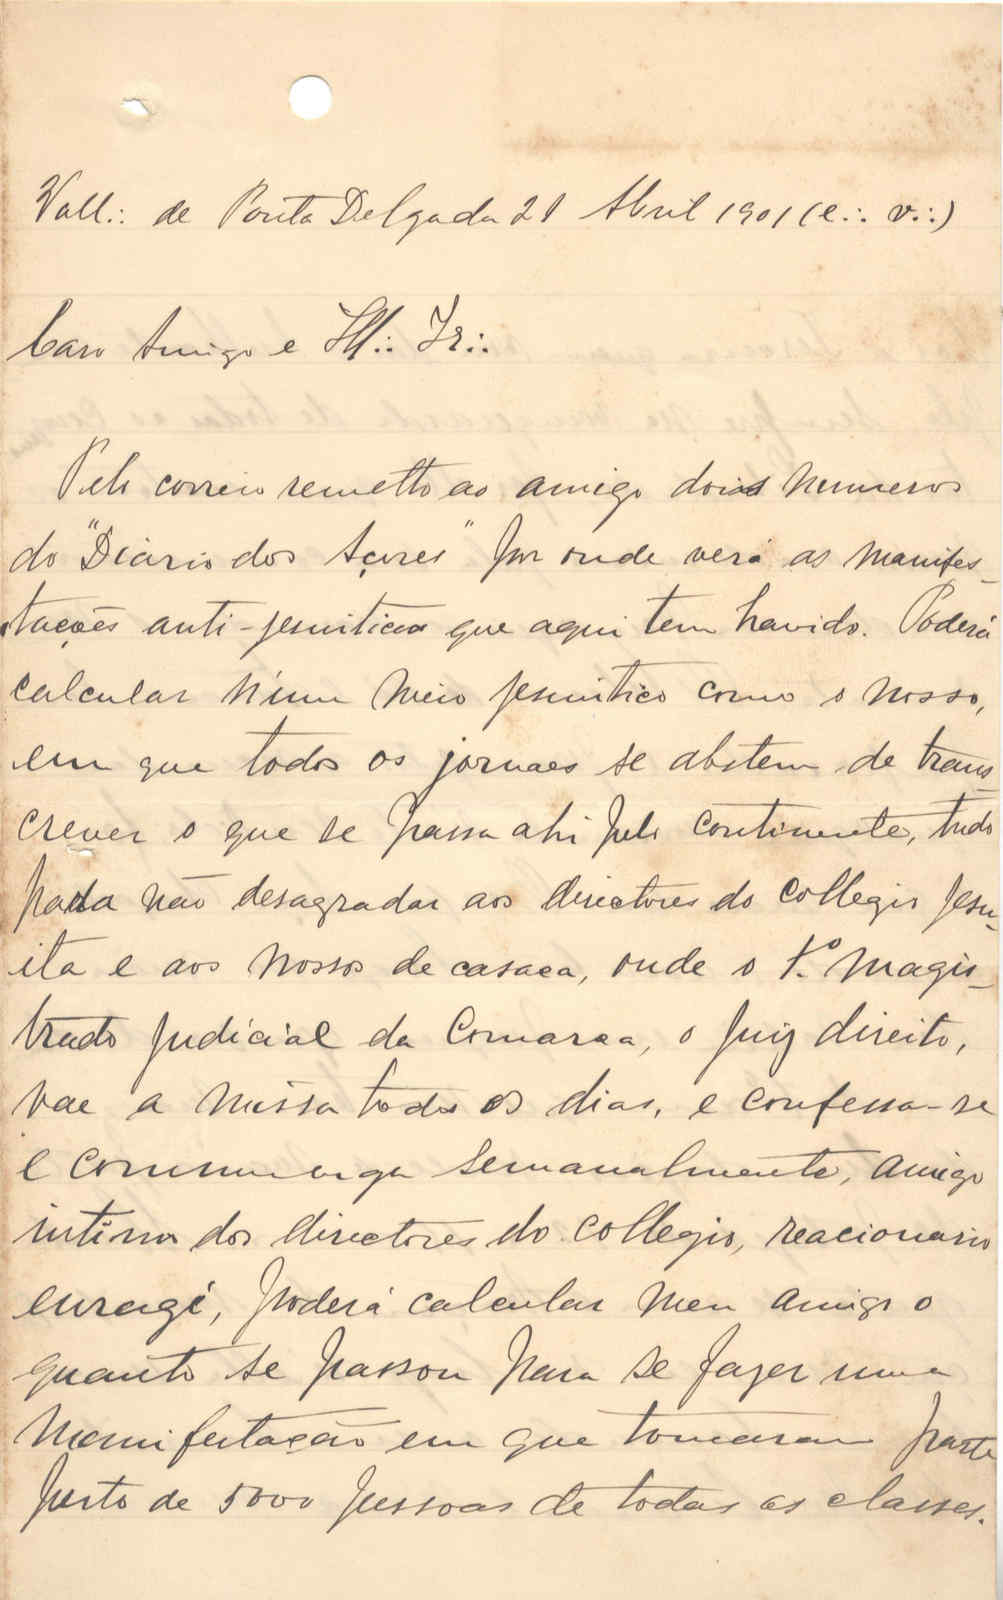 Vall∴ de Ponta Delgada 21 Abril 1901 (e∴ v∴)
Caro Amigo e Ill∴ Ir∴
Pelo correio remetto ao amigo dois numeros
do "Diario dos Açores" por onde verá as manifes-
tações anti-jesuiticas que aqui tem havido. Poderá
calcular n'um meio jesuitico como o nosso,
em que todos os jornaes se abstem de trans-
crever o que se passa ahi pelo continente, tudo
para não desagradar aos directores do collegio jesu-
ita e aos nossos de casaca, onde o 1º magis-
trado judicial da Comarca, o juiz direito,
vae a missa todos os dias, e confessa-se
e communga semanalmente, amigo
intimo dos directores do collegio, reacionario
enragé, poderá calcular meu amigo o
quanto se passou para se fazer uma
manifestação em que tomaram parte
perto de 5000 pessoas de todas as classes.